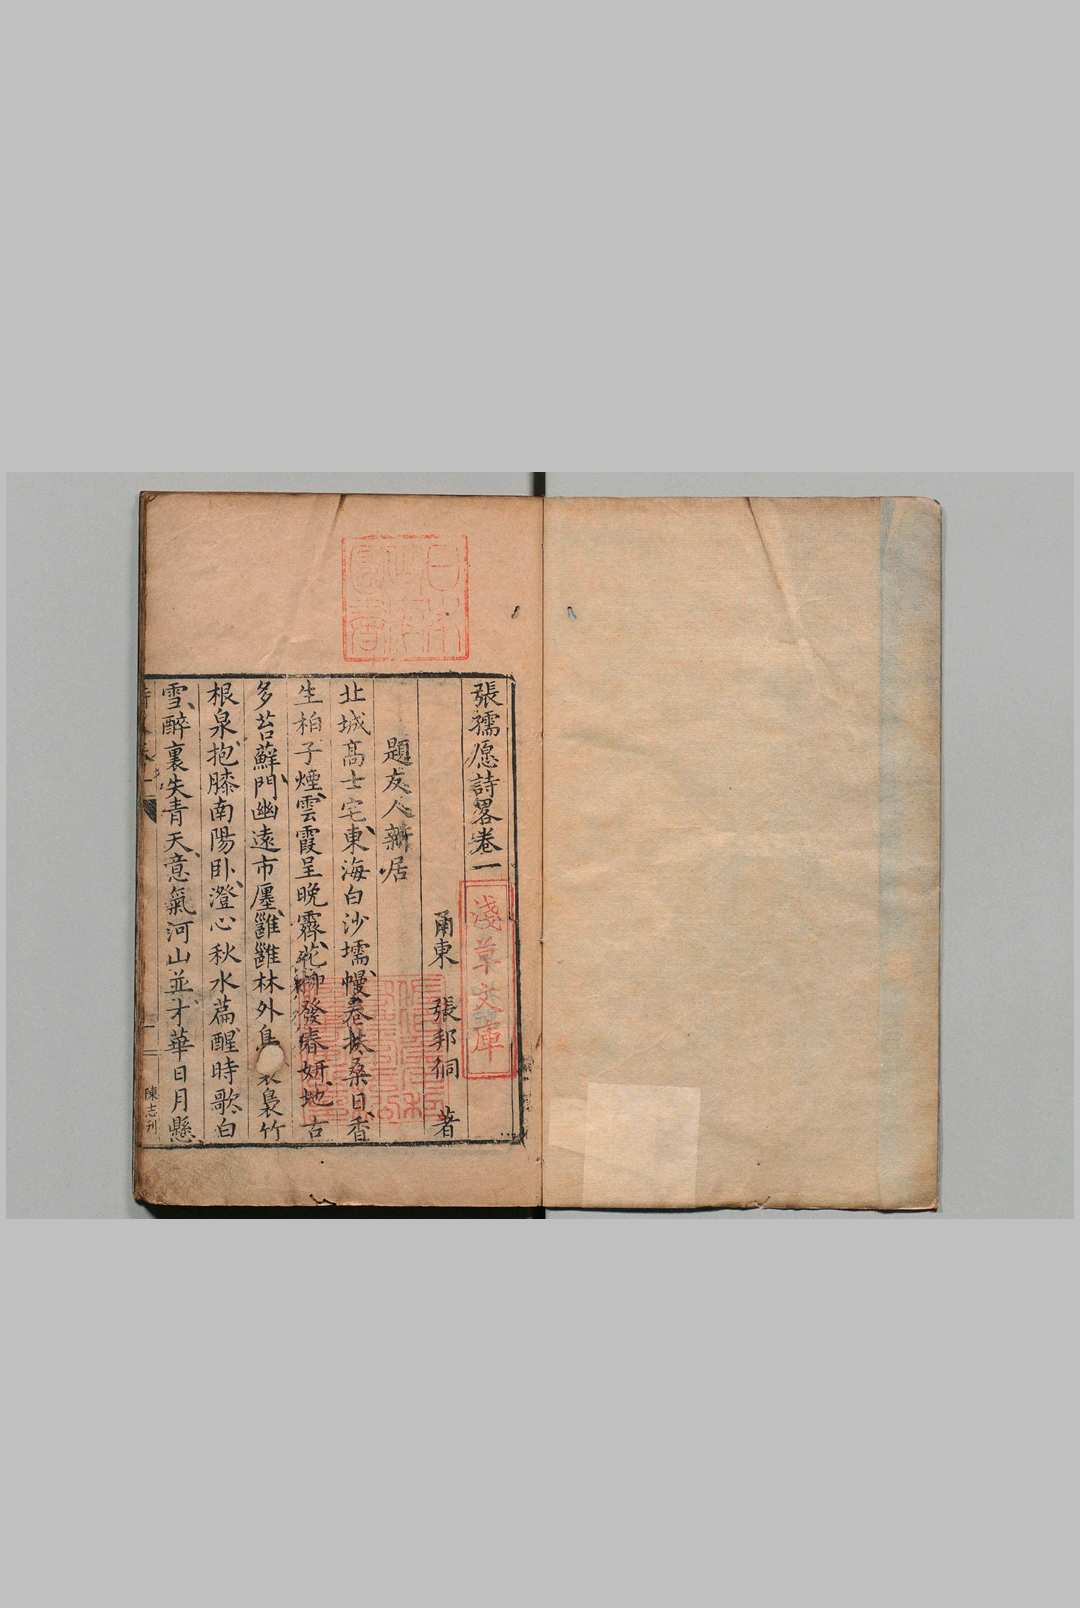 張孺愿詩畧卷一
甬東 張邦侗 著
題友人新居
北城髙士宅東海白沙壖幔卷扶桑日香
生柏子煙雲霞呈晚霽花柳發春妍地古
多苔蘚門幽遠市廛雝雝林外鳥裊竹
根泉抱膝南陽卧澄心秋水篇醒時歌白
雪醉裏失青天意氣河山並才華日月懸
陳志刊
淺草文庫